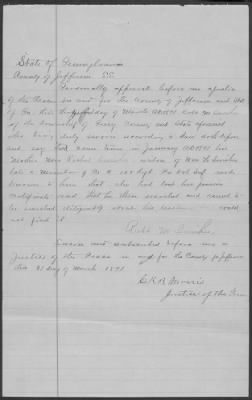 State of Pennsylvania
County of Jefferson SS
Personally appeared before me a Justice
of the Peace in and for the County of Jefferson and State
of Pa. this day of March AD 1891 Robt M
of the Township of Perry County and State aforesaid
who being duly sworn according to law doth depose
and say that some time in January AD 1891 his
Mother Mrs Rachel widow of Wm H
late a Member of Co 105 Regt Pa Vol Inf
known to him that she had lost her pension
Certificate and that he then searched and caused to
be searched diligently about his and could
not find it
Robt M
Sworn and subscribed before me a
Justice of the Peace in and for the County of Jefferson
this 31 day of March 1891
C.R.B. Morris
Justice of the Peace